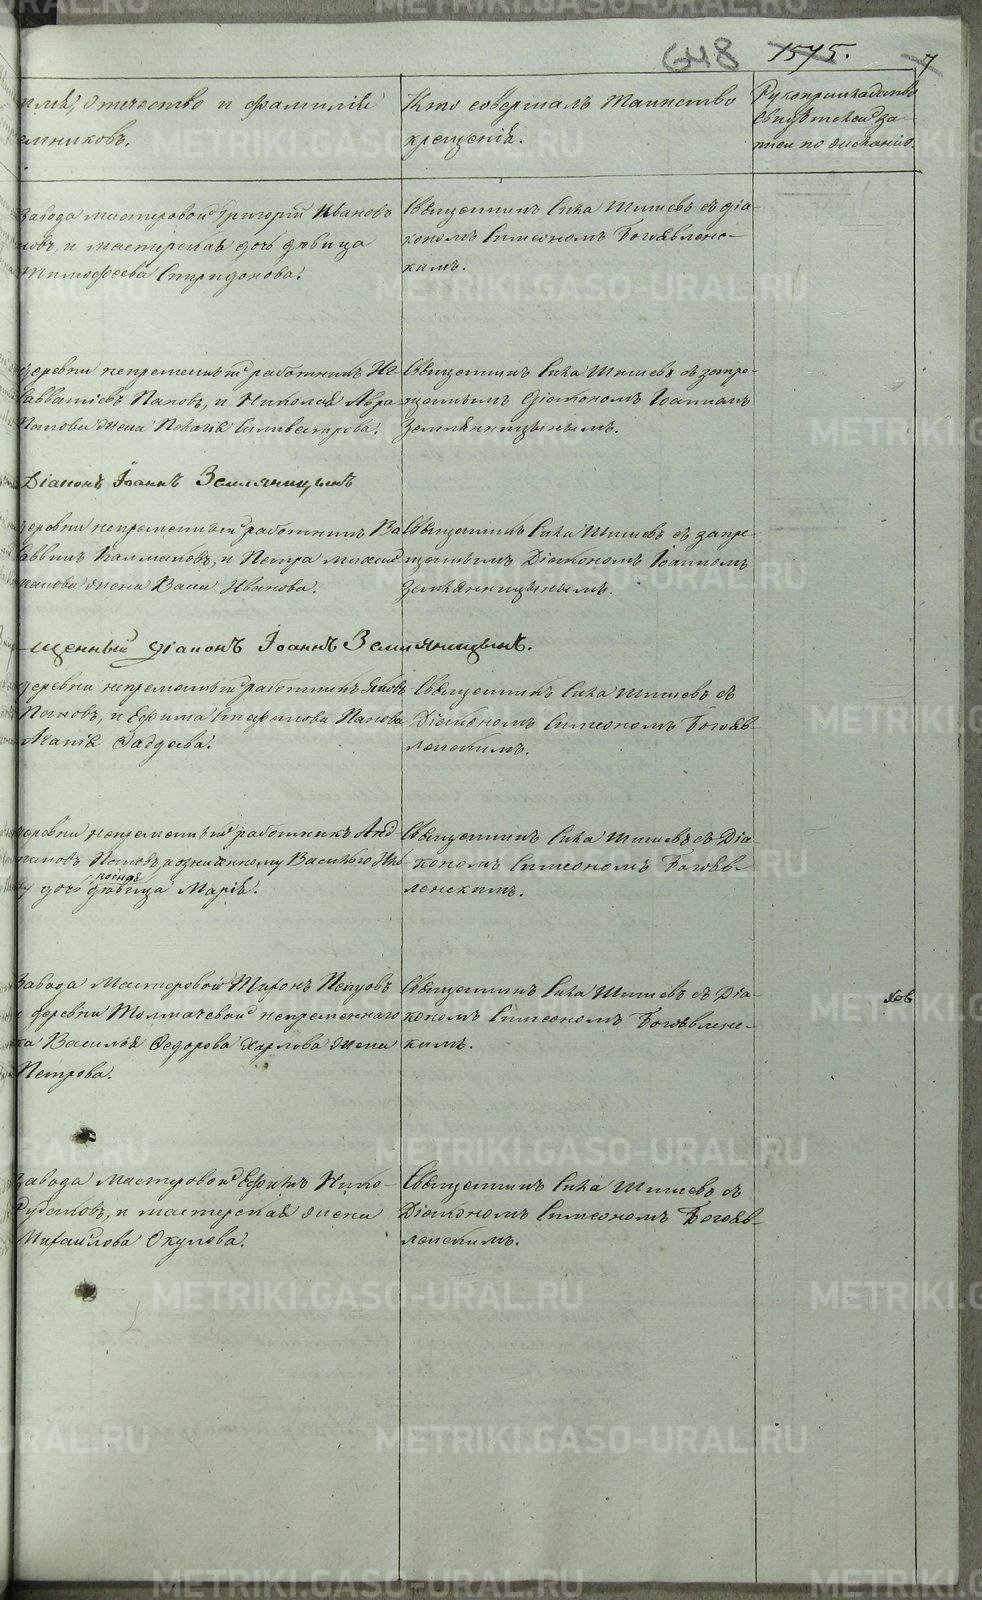 648 1575. 7
имя, отечество и фамилія
емниковъ.
Кто совершалъ таинство
крещенія.
Рукоприкладство
свидѣтелей за-
писи по желанію.
завода мастеровой Григорій Ивановъ
новъ, и мастерская дочь дѣвица
Тимофеева Спиридонова.
Священникъ Сила Шишевъ съ діа-
кономъ Симеономъ Богоявленс-
кимъ.
деревни непремѣнный работникъ
Савватіевъ Пановъ, и Николая Авра
Панова жена Пелагія Сильвестрова.
Священникъ Сила Шишевъ съ запре-
щеннымъ діакономъ Іоанномъ
Земляницынымъ.
Діаконъ Іоаннъ Земляницынъ
деревни непремѣнный работникъ Ва
Саввинъ Калмаковъ, и Петра
жена Васса Иванова.
Священникъ Сила Шишевъ съ запре-
щеннымъ Діакономъ Іоанномъ
Земляницынымъ.
щенный діаконъ Іоаннъ Земляницынъ.
деревни непремѣнный работникъ Яковъ
Пановъ, и Ефима Панова
Агапія Фадеева.
Священникъ Сила Шишевъ съ
Діакономъ Симеономъ Богояв-
ленскимъ.
деревни непремѣнный работникъ Анд
Пановъ Василью
дочь родная дѣвица Марія.
Священникъ Сила Шишевъ съ Діа-
кономъ Симеономъ Богояв-
ленскимъ.
завода Мастеровой Тихонъ Петровъ
и деревни Толмачевой непременнаго
ка Василья Федорова Карлова жена
Петрова.
Священникъ Сила Шишевъ съ Діа-
кономъ Симеономъ Богоявленс-
кимъ.
ков
завода мастеровой Ефимъ Нико-
Рубцовъ, и мастерская жена
Михайлова Окулова.
Священникъ Сила Шишевъ съ
Діакономъ Симеономъ Богояв-
ленскимъ.
METRIKI.GASO-URAL.RU